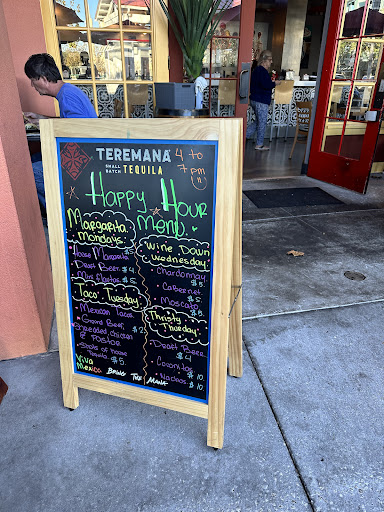 TEREMANA
SMALL BATCH TEQUILA
4 to 7 pm
Happy Hour
Menu.
Margarita
Mondays.
House Margarita
Draft Beer. $4
Mini Nachos. $5
Taco Tuesday.
Mexican Tacos
Ground Beef, $2
Shredded Chicken
& Pastor
Shots of house
Tequila $5.
Viva
Mexico
Wine Down
Wednesday.
Chardonnay
$5.
Cabernet
$5.
Moscato
$5.
Thirsty
Thursday.
Draft Beer.
$4
Coronitas
$10.
Nachos $10.
BRING THE MANA